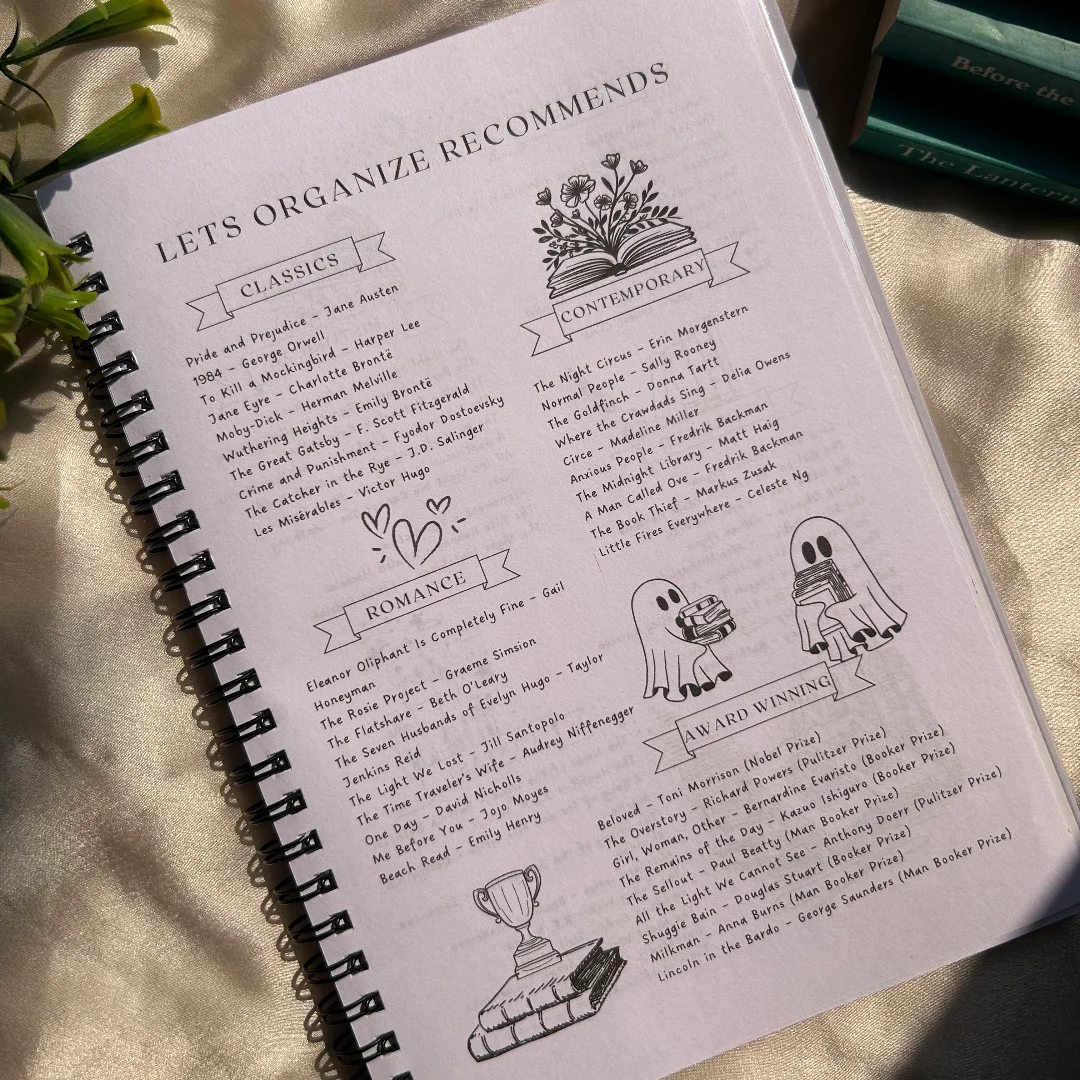 LETS ORGANIZE RECOMMENDS
CLASSICS
Pride and Prejudice – Jane Austen
1984 – George Orwell
To Kill a Mockingbird – Harper Lee
Jane Eyre – Charlotte Brontë
Moby-Dick – Herman Melville
Wuthering Heights – Emily Brontë
The Great Gatsby – F. Scott Fitzgerald
Crime and Punishment – Fyodor Dostoevsky
The Catcher in the Rye – J.D. Salinger
Les Misérables – Victor Hugo
CONTEMPORARY
The Night Circus – Erin Morgenstern
Normal People – Sally Rooney
The Goldfinch – Donna Tartt
Where the Crawdads Sing – Delia Owens
Circe – Madeline Miller
Anxious People – Fredrik Backman
The Midnight Library – Matt Haig
A Man Called Ove – Fredrik Backman
The Book Thief – Markus Zusak
Little Fires Everywhere – Celeste Ng
ROMANCE
Eleanor Oliphant Is Completely Fine – Gail
Honeyman
The Rosie Project – Graeme Simsion
The Flatshare – Beth O'Leary
The Seven Husbands of Evelyn Hugo – Taylor
Jenkins Reid
The Light We Lost – Jill Santopolo
The Time Traveler's Wife – Audrey Niffenegger
One Day – David Nicholls
Me Before You – Jojo Moyes
Beach Read – Emily Henry
AWARD WINNING
Beloved – Toni Morrison (Nobel Prize)
The Overstory – Richard Powers (Pulitzer Prize)
Girl, Woman, Other – Bernardine Evaristo (Booker Prize)
The Remains of the Day – Kazuo Ishiguro (Booker Prize)
The Sellout – Paul Beatty (Man Booker Prize)
All the Light We Cannot See – Anthony Doerr (Pulitzer Prize)
Shuggie Bain – Douglas Stuart (Booker Prize)
Milkman – Anna Burns (Man Booker Prize)
Lincoln in the Bardo – George Saunders (Man Booker Prize)
Before the
The Lantern